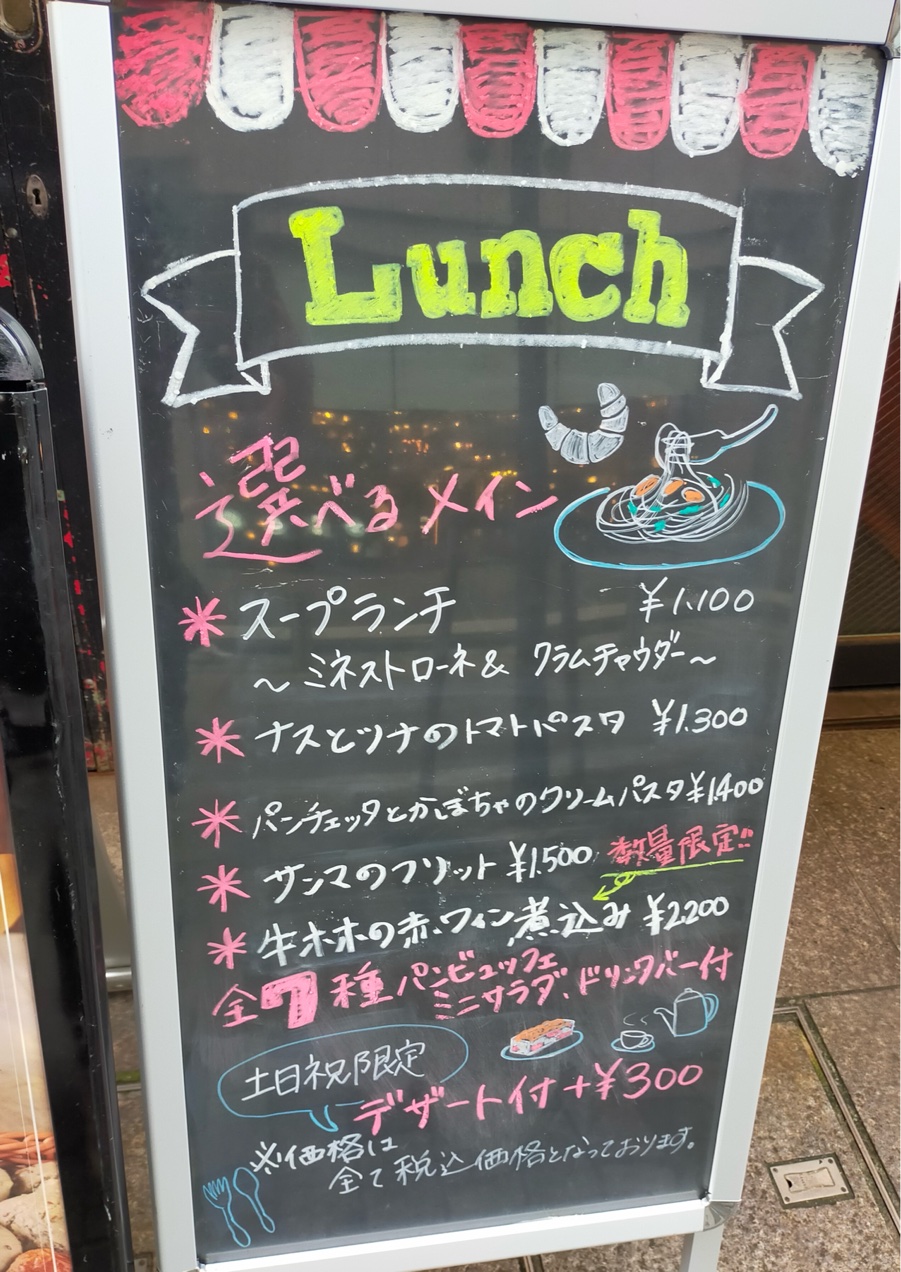 Lunch
選べるメイン
* スープランチ ¥1,100
～ ミネストローネ & クラムチャウダー ～
* ナスとツナのトマトパスタ ¥1,300
* パンチェッタとかぼちゃのクリームパスタ ¥1,400
* サンマのフリット ¥1,500 数量限定!!
* 牛ホホの赤ワイン煮込み ¥2,200
全7種パンビュッフェ
ミニサラダ、ドリンクバー付
土日祝限定
デザート付+¥300
※価格は
全て税込価格となっております。